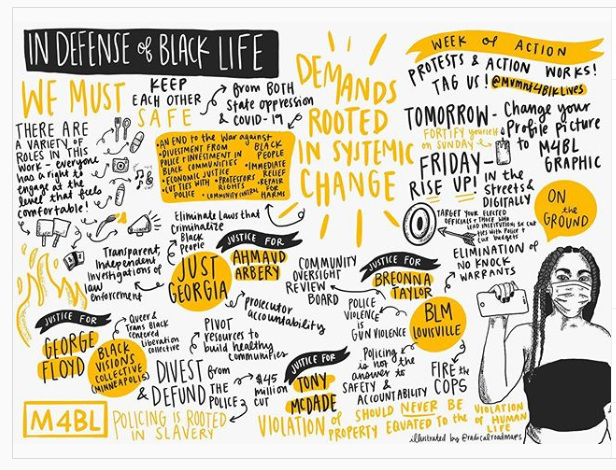 IN DEFENSE of BLACK LIFE
WE MUST
KEEP
EACH OTHER
SAFE
from BOTH
State oppression
& COVID-19
THERE ARE
A VARIETY OF
ROLES IN THIS
WORK - everyone
has a right to
engage at the
level that feels
comfortable!
•AN END to the War against
BLACK
PEOPLE
•DIVESTMENT FROM
POLICE & INVESTMENT IN
BLACK COMMUNITIES
•ECONOMIC JUSTICE
•CUT TIES WITH
POLICE
•PROTESTORS
RIGHTS
•COMMUNITY CONTROL
•IMMEDIATE
RELIEF
•REPAIR
FOR
HARMS
DEMANDS
ROOTED
IN SYSTEMIC
CHANGE
WEEK of ACTION
PROTESTS & ACTION WORKS!
TAG US! @Mvmnt4BlkLives
TOMORROW - Change your
Profile Picture
to M4BL
GRAPHIC
FORTIFY yourself
on SUNDAY
FRIDAY -
RISE UP!
IN the
STREETS &
DIGITALLY
ON
the
GROUND
TARGET YOUR ELECTED
OFFICIALS + THOSE WHO
LEAD INSTITUTIONS to CUT
ties WITH Police +
Cut budgets
ELIMINATION OF
NO KNOCK
WARRANTS
Eliminate Laws that
criminalize
Black
People
Transparent,
Independent
Investigations of
law
enforcement
JUSTICE FOR
AHMAUD
ARBERY
JUST
GEORGIA
prosecutor
accountability
COMMUNITY
OVERSIGHT
REVIEW
BOARD
JUSTICE FOR
BREONNA
TAYLOR
BLM
LOUISVILLE
POLICE
VIOLENCE
is
GUN VIOLENCE
Policing
is not the
answer to
SAFETY &
ACCOUNTABILITY
FIRE the
COPS
JUSTICE FOR
GEORGE
FLOYD
BLACK
VISIONS
COLLECTIVE
(MINNEAPOLIS)
Queer &
Trans Black
Centered
Liberation
collective
PIVOT
resources to
build healthy
communities
DIVEST from
& DEFUND the
POLICE
$45
million
CUT
JUSTICE FOR
TONY
MCDADE
M4BL
POLICING IS ROOTED
IN SLAVERY
VIOLATION of PROPERTY SHOULD NEVER BE EQUATED to the VIOLATION OF HUMAN LIFE
illustrated by @radicalroadmaps